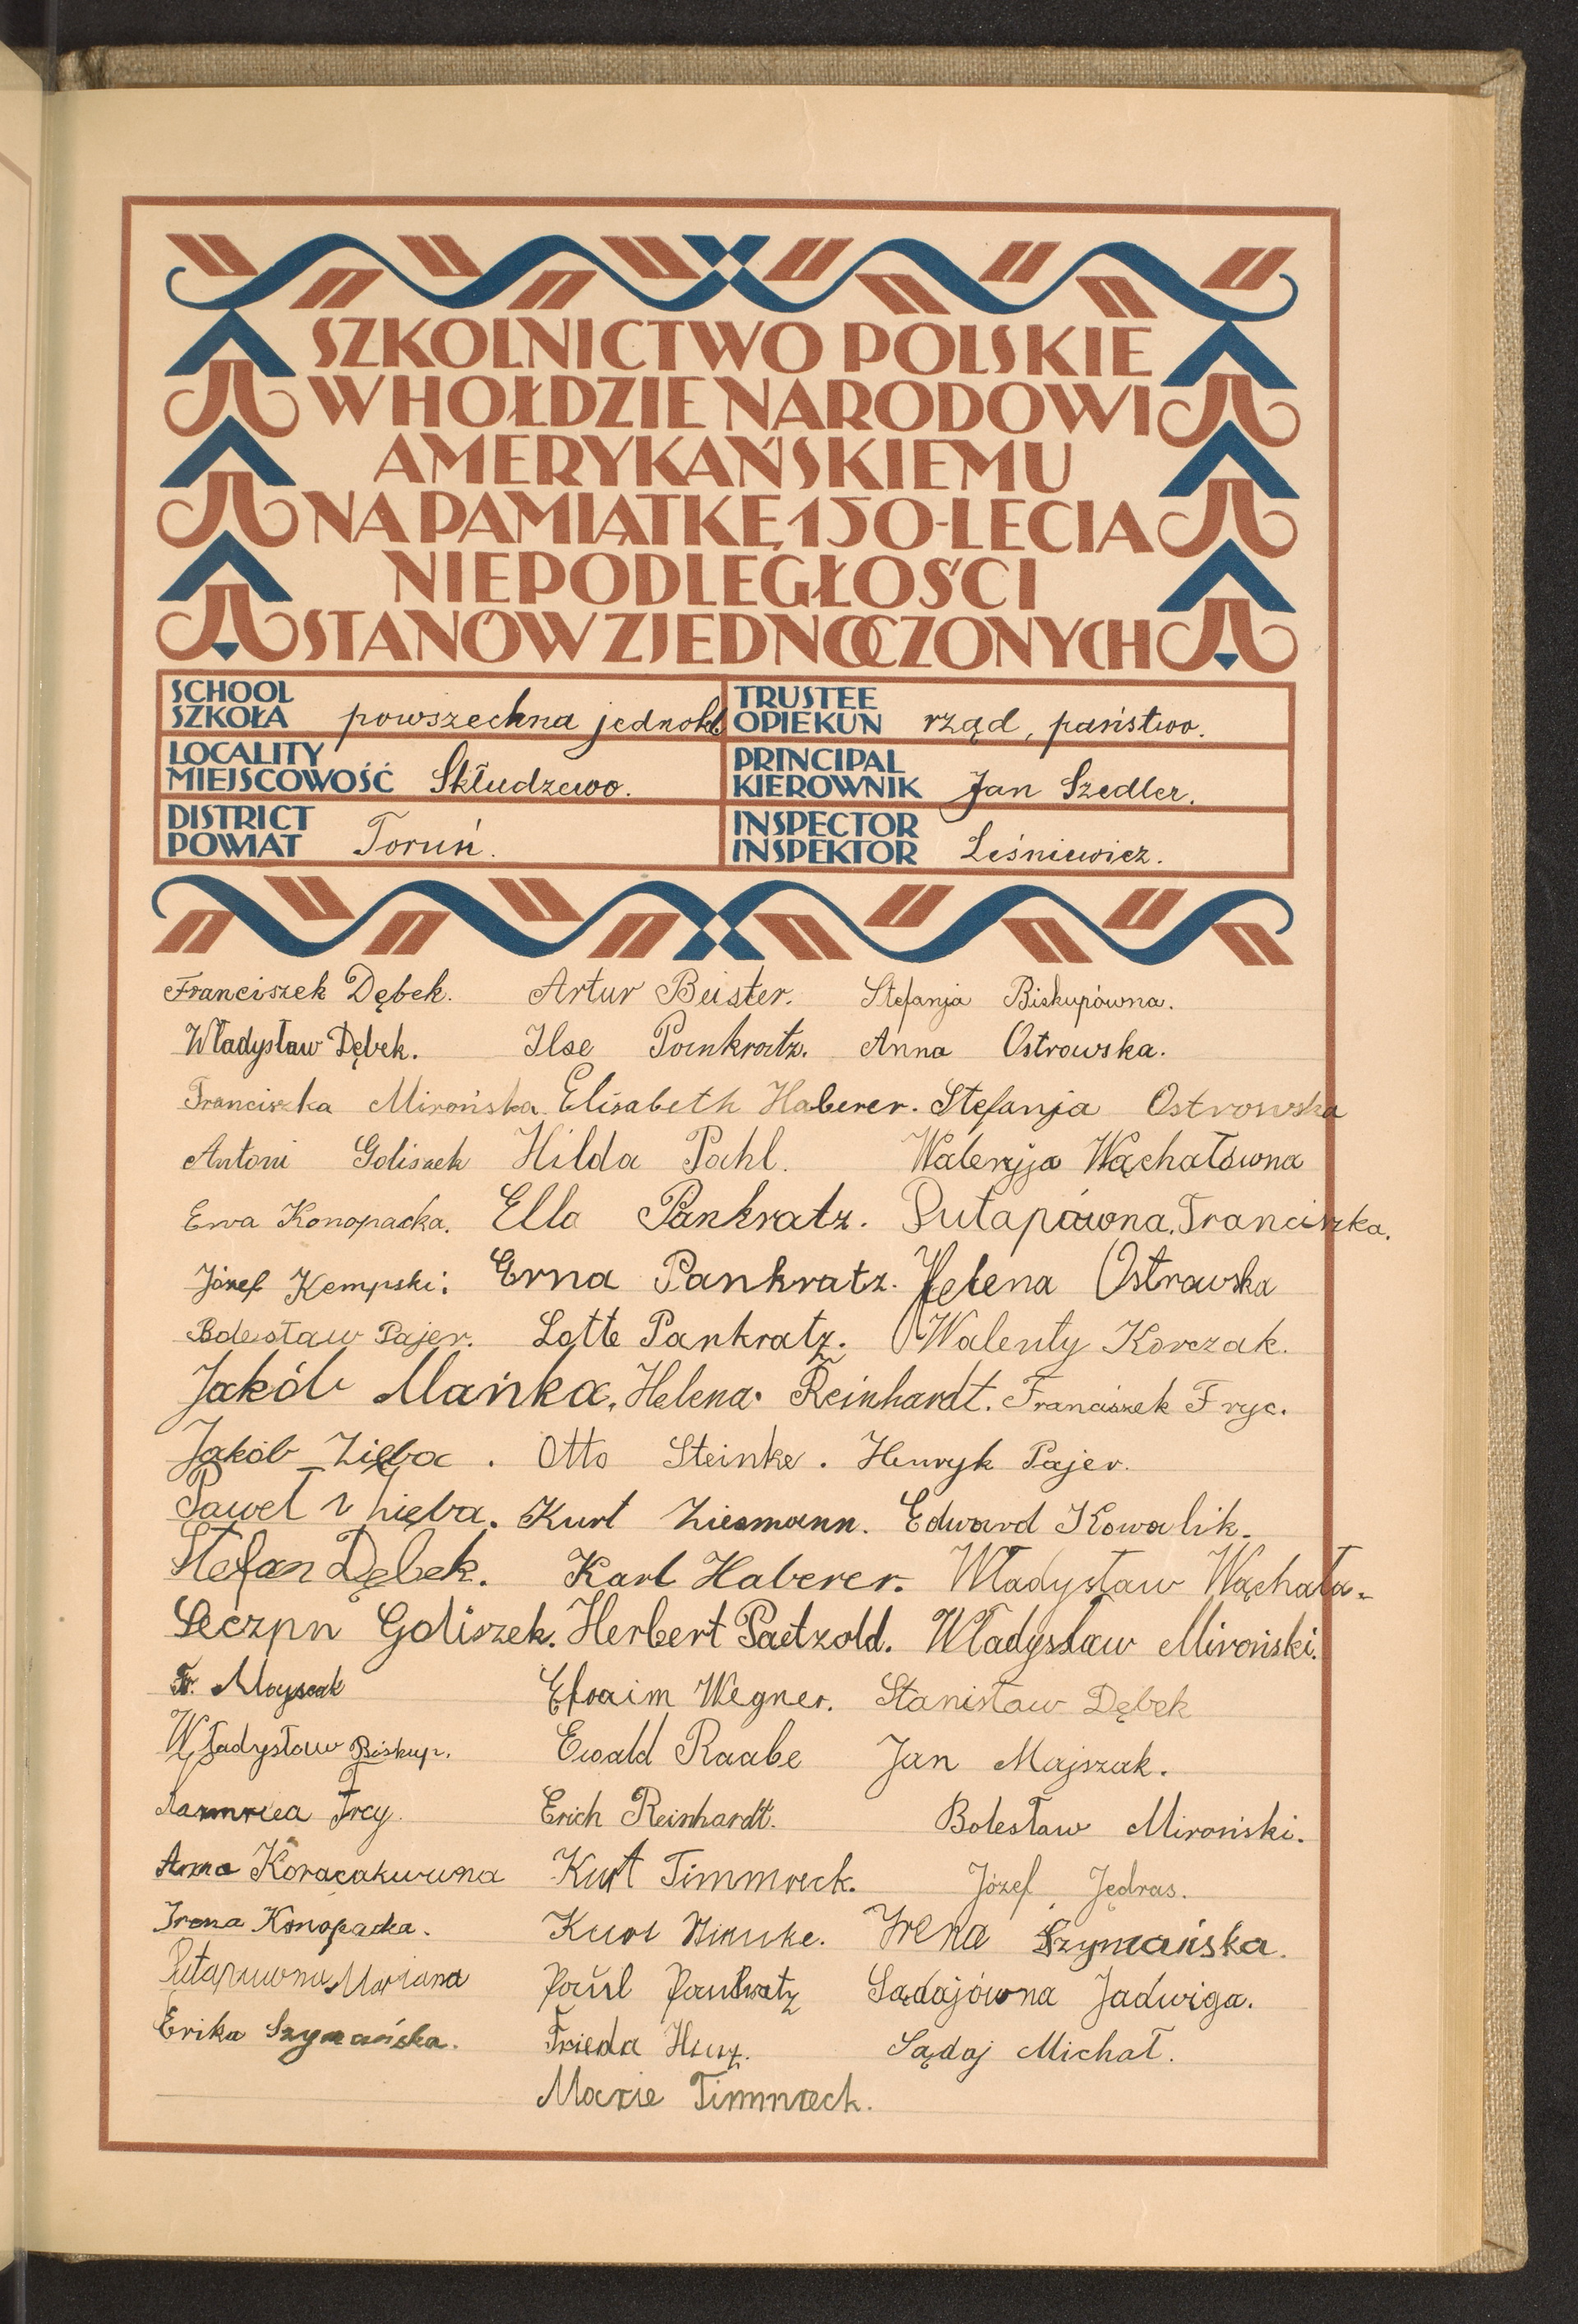 SZKOLNICTWO POLSKIE
W HOŁDZIE NARODOWI
AMERYKAŃSKIEMU
NA PAMIĄTKĘ 150-LECIA
NIEPODLEGŁOŚCI
STANÓW ZJEDNOCZONYCH
SCHOOL
SZKOŁA powszechna jednokl.
TRUSTEE
OPIEKUN rząd, państwo.
LOCALITY
MIEJSCOWOŚĆ Skłudzewo.
PRINCIPAL
KIEROWNIK Jan Szedler.
DISTRICT
POWIAT Toruń.
INSPECTOR
INSPEKTOR Leśniewicz.
Franciszek Dębek. Artur Beister. Stefanja Biskupówna.
Władysław Dębek. Ilse Pankratz. Anna Ostrowska.
Franciszka Mirońska. Elisabeth Haberer. Stefanja Ostrowska
Antoni Goliszek Hilda Pahl. Walerja Wąchałówna
Ewa Konopacka. Ella Pankratz. Putapówna. Franciszka.
Józef Kempski. Erna Pankratz. Helena Ostrowska
Bolesław Pajer. Lotte Pankratz. Walenty Korczak.
Jakób Mańka. Helena Reinhardt. Franciszek Fryc.
Jakób Zięba. Otto Steinke. Henryk Pajer.
Paweł Zięba. Kurt Ziesmann. Edward Kowalik.
Stefan Dębek. Karl Haberer. Władysław Wąchała.
Seczpn Goliszek. Herbert Paetzold. Władysław Miroński.
Fr. Efraim Wegner. Stanisław Dębek
Władysław Biskup. Ewald Raabe Jan Majszak.
Erich Reinhardt. Bolesław Miroński.
Anna Kurt Timmreck. Józef Jędras.
Irena Konopacka. Kurt Irena Szymańska.
Mariana Paul Pankratz Sądajówna Jadwiga.
Erika Szymańska. Frieda Sądaj Michał.
Marie Timmreck.